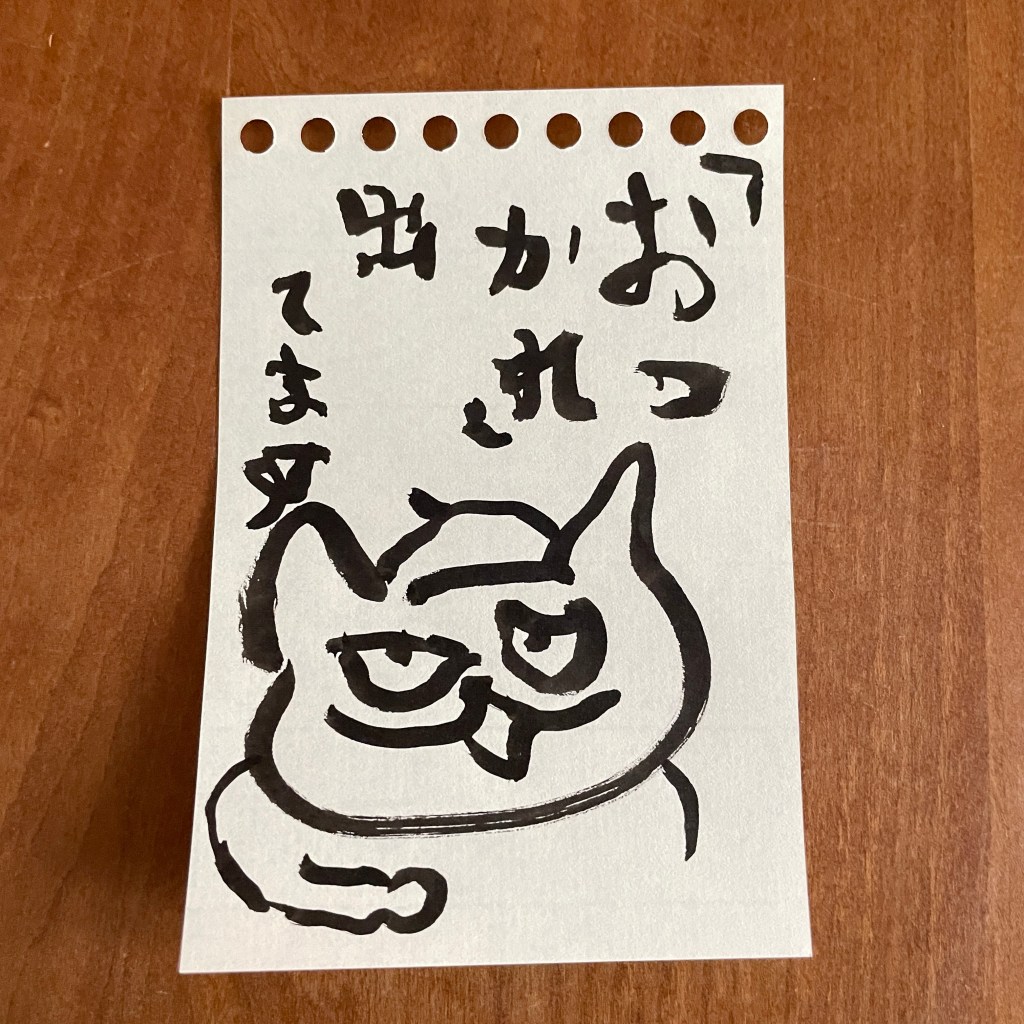 「おつ
かれ」
出てます